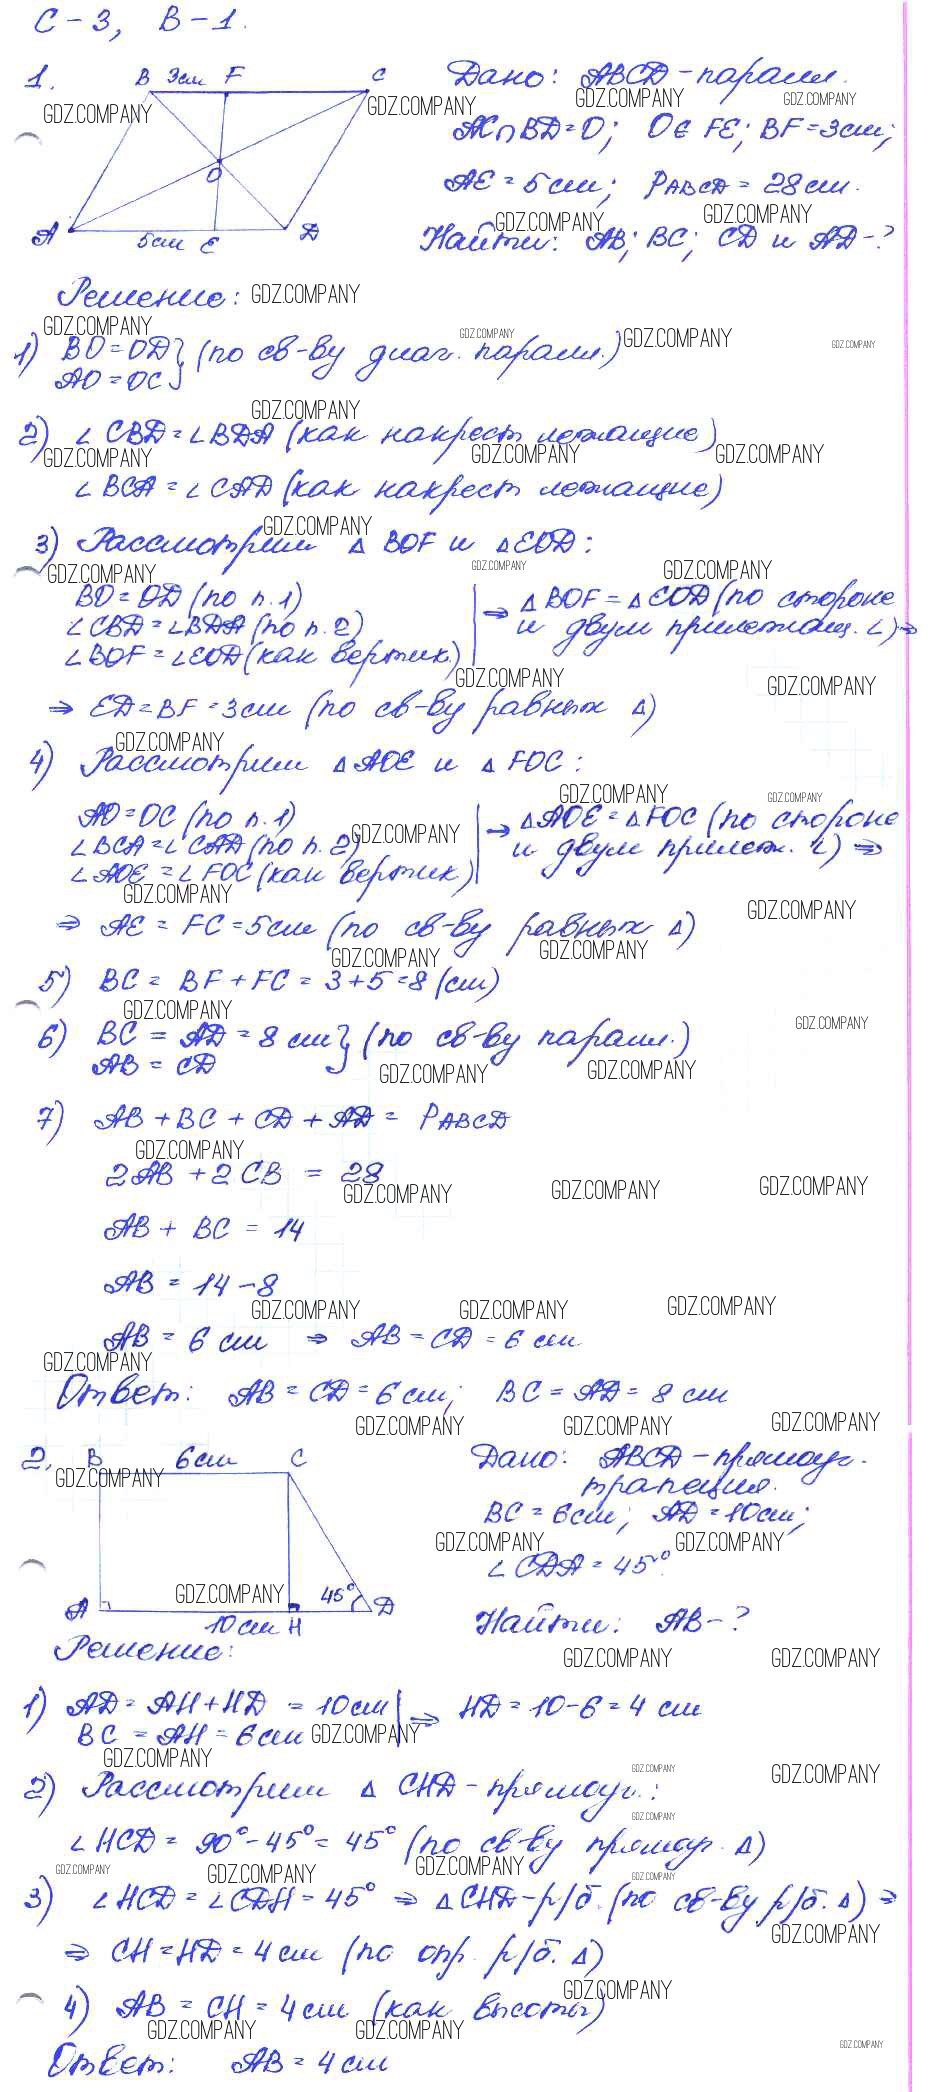 С-3, В-1.
1. B 3см F C
O
A 5см E D
Дано: ABCD - паралл.
AC∩BD=O; O∈FE; BF=3см;
AE=5см; PABCD=28см.
Найти: AB; BC; CD и AD-?
Решение:
1) BO=OD
AO=OC } (по св-ву диаг. паралл.)
2) ∠CBD=∠BDA (как накрест лежащие)
∠BCA=∠CAD (как накрест лежащие)
3) Рассмотрим △BOF и △EOD:
BO=OD (по п.1)
∠CBD=∠BDA (по п.2)
∠BOF=∠EOD (как вертик.)
⇒ △BOF=△EOD (по стороне
и двум прилежащ. ∠) ⇒
⇒ ED=BF=3см (по св-ву равных △)
4) Рассмотрим △AOE и △FOC:
AO=OC (по п.1)
∠BCA=∠CAD (по п.2)
∠AOE=∠FOC (как вертик)
⇒ △AOE=△FOC (по стороне
и двум прилеж. ∠) ⇒
⇒ AE=FC=5см (по св-ву равных △)
5) BC=BF+FC=3+5=8 (см)
6) BC=AD=8см
AB=CD } (по св-ву паралл.)
7) AB+BC+CD+AD=PABCD
2AB+2CB=28
AB+BC=14
AB=14-8
AB=6 см ⇒ AB=CD=6 см
Ответ: AB=CD=6см; BC=AD=8 см
2. B 6см C
45°
A 10см H D
Дано: ABCD - прямоуг.
трапеция.
BC=6см; AD=10см;
∠CDA=45°.
Найти: AB-?
Решение:
1) AD=AH+HD=10см
BC=AH=6см
⇒ HD=10-6=4 см
2) Рассмотрим △CHD - прямоуг.:
∠HCD=90°-45°=45° (по св-ву прямоуг. △)
3) ∠HCD=∠CDH=45° ⇒ △CHD - р/б. (по св-ву р/б. △) ⇒
⇒ CH=HD=4см (по опр. р/б. △)
4) AB=CH=4см (как высоты)
Ответ: AB=4см
GDZ.COMPANY